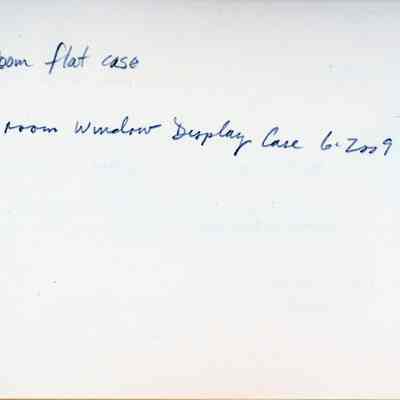 oom flat case
room Window Display Case 6-2009